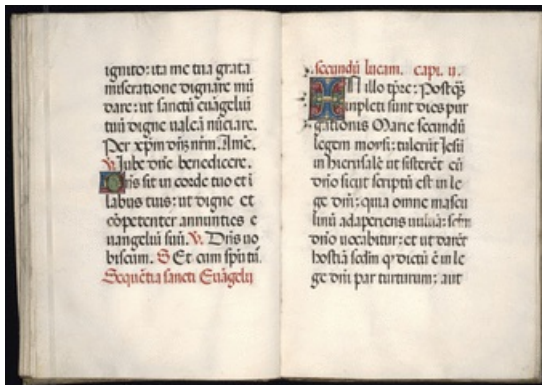 ignito: ita me tua grata
miseratione dignare mū
dare: ut sanctū euāgeliū
tuū digne ualeā nūciare.
Per xp̄m dn̄m nr̄m. Amē.
V. Iube dn̄e benedicere.
Dn̄s sit in corde tuo et i
labus tuis: ut digne et
cōpetenter annunties e
uangeliū suū. V. Dn̄s uo
biscum. S Et cum sp̄u tū.
Sequētia sancti Euāgelij
secundū lucam. capi. ij.
In illo tp̄re: Postq̄
inpleti sunt dies pur
gationis Marie secundū
legem moysi: tulerūt Iesū
in hierusalē ut sisterēt eū
dn̄o sicut scriptū est in le
ge dn̄i: quia omne mascu
linū adaperiens uuluā: sctm̄
dn̄o uocabitur: et ut darēt
hostiā scdm̄ q dictū ē in le
ge dn̄i par turturum: aut